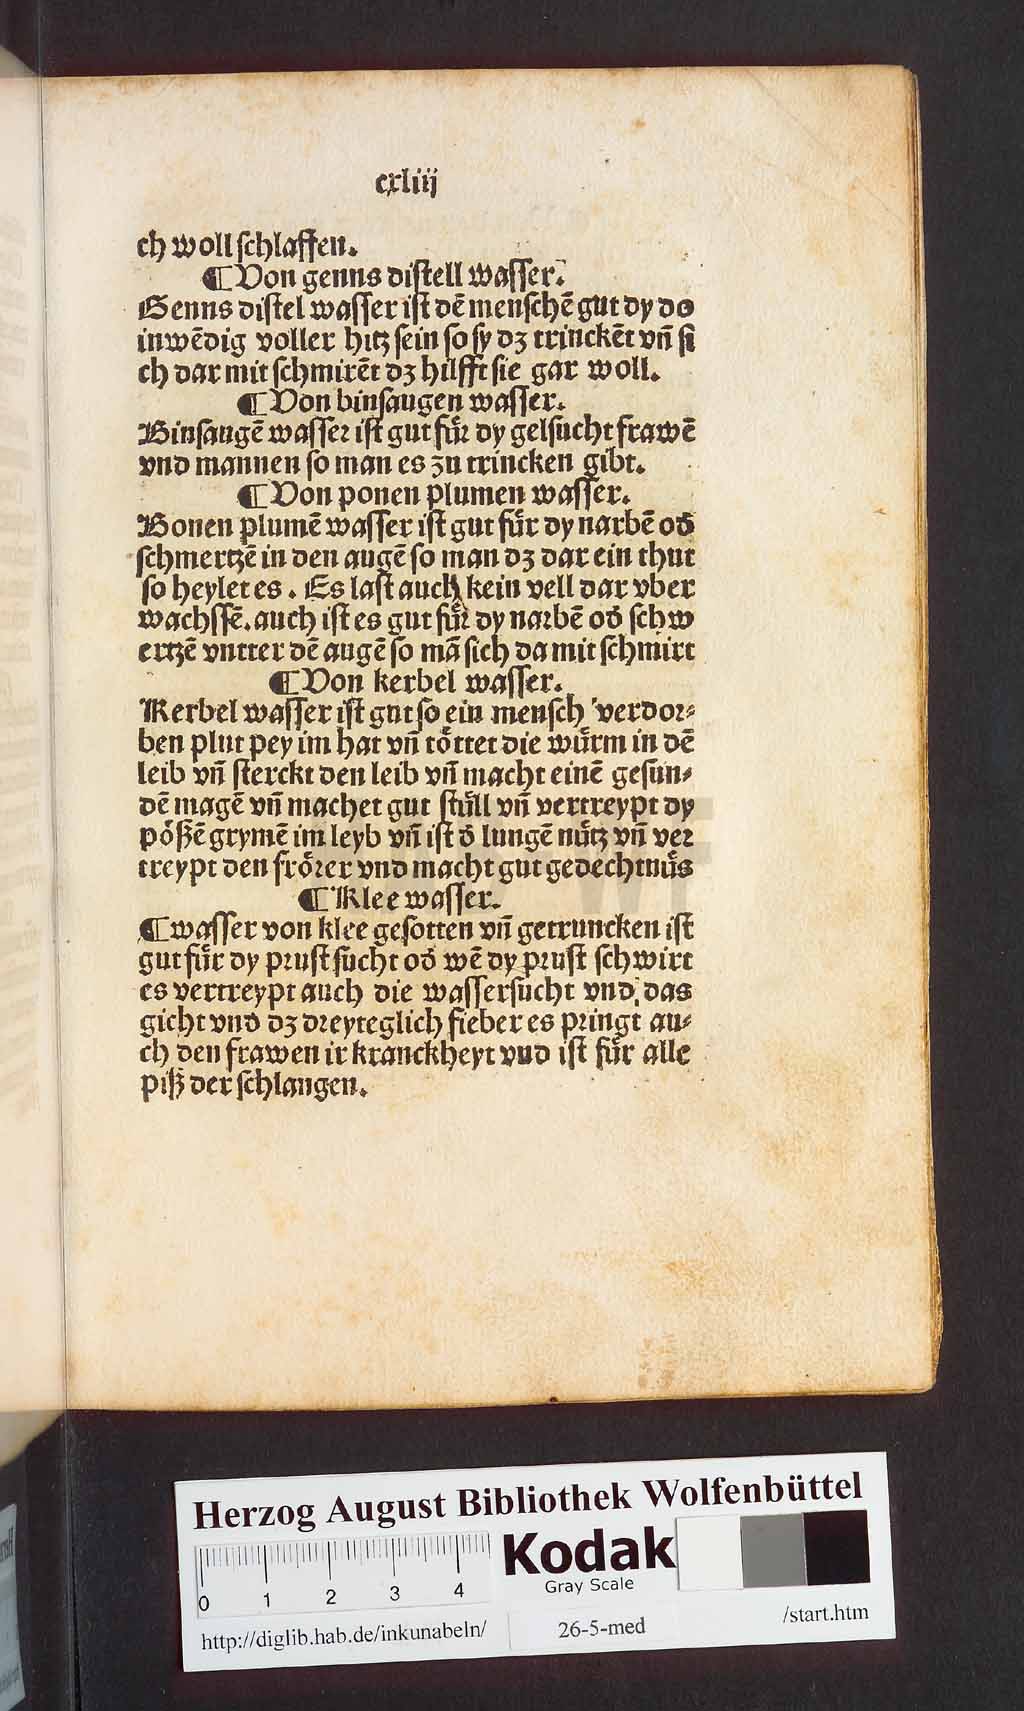 cxliij
ch woll schlaffen.
¶ Von genns distell wasser.
Genns distel wasser ist dē menschē gut dy do
inwēdig voller hitz sein so sy dz trinckēt vñ si
ch dar mit schmirēt dz hilfft sie gar woll.
¶ Von binsaugen wasser.
Binsaugē wasser ist gut fuͤr dy gelsucht frawē
vnd mannen so man es zu trincken gibt.
¶ Von ponen plumen wasser.
Bonen plumē wasser ist gut fuͤr dy narbē od̄
schmertzē in den augē so man dz dar ein thut
so heylet es. Es last auch kein vell dar vber
wachssē. auch ist es gut fuͤr dy narbē od̄ schw
ertzē vntter dē augē so mā sich da mit schmirt
¶ Von kerbel wasser.
Kerbel wasser ist gut so ein mensch verdor⸗
ben plut pey im hat vñ toͤttet die wuͤrm in dē
leib vñ sterckt den leib vñ macht einē gesun⸗
dē magē vñ machet gut stuͤll vñ vertreypt dy
poͤßē grymē im leyb vñ ist d̄ lungē nuͤtz vñ ver
treypt den froͤrer vnd macht gut gedechtnuͤs
¶ Klee wasser.
¶ wasser von klee gesotten vñ getruncken ist
gut fuͤr dy prust sucht od̄ wē dy prust schwirt
es vertreypt auch die wassersucht vnd das
gicht vnd dz dreyteglich fieber es pringt au⸗
ch den frawen ir kranckheyt vnd ist fuͤr alle
piß der schlangen.
Herzog August Bibliothek Wolfenbüttel
0 1 2 3 4
Kodak
Gray Scale
http://diglib.hab.de/inkunabeln/
26-5-med
/start.htm